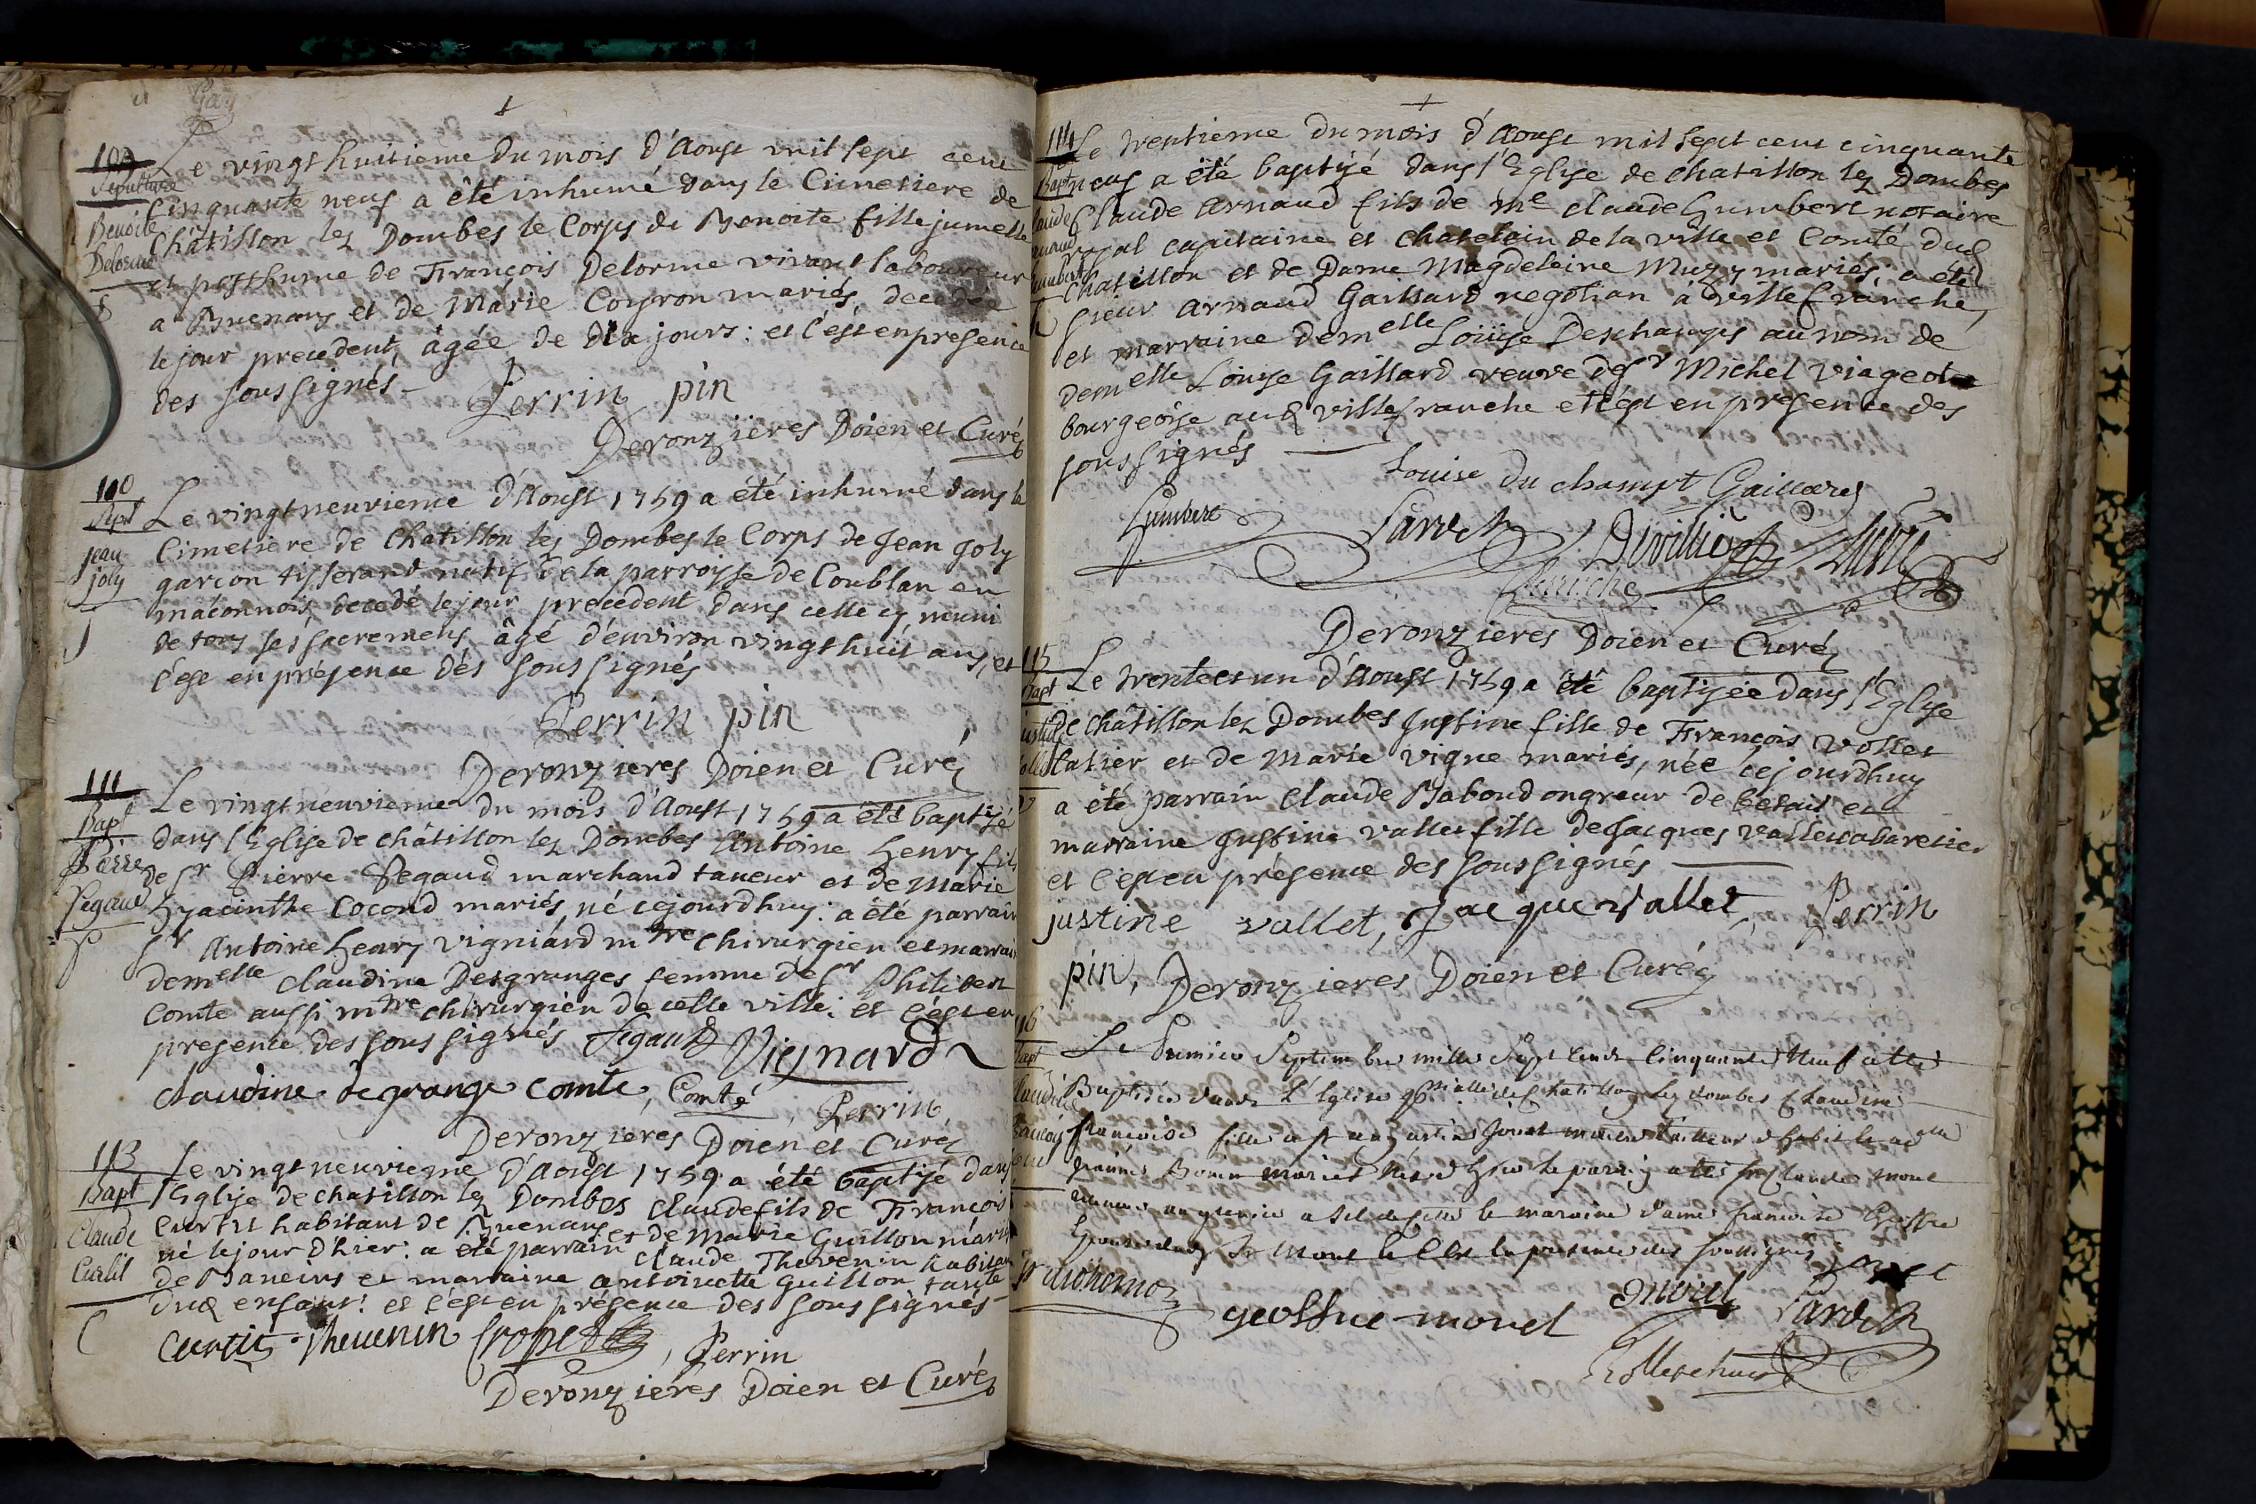 109
Sepulture
Benoite
Delorme
Le vingt huitieme du mois d'Aoust mil sept cent
cinquante neuf a été inhumé dans le Cimetiere de
Châtillon lez Dombes le Corps de Benoite fille jumelle
et posthume de François Delorme vivant laboureur
a Buenans et de Marie Coyron mariés, decedée
le jour precedent, âgée de dix jours: et c'est en presence
des soussignés
Perrin pin
Deronzieres Doïen et Curé
110
Sepr
jean
joly
Le vingt neuvieme d'Aoust 1759 a été inhumé dans le
Cimetiere de Chatillon lez Dombes le Corps de Jean Joly
garcon tisserand natif de la parroisse de Coublan en
maconnois, decedé le jour precedent dans celle cy muni
de tous les sacremens âgé d'environ vingt huit ans, et
c'est en présence des soussignés
Perrin pin
Deronzieres Doïen et Curé
111
Bapt
Pierre
Segaud
Le vingt neuvieme du mois d'Aoust 1759 a été baptisé
dans l'Eglise de châtillon lez Dombes Antoine henry fils
de Sr Pierre Segaud marchand taneur et de Marie
hyacinthe Cocond mariés, né cejourdhuy: a été parrain
Sr Antoine henry vigniard mtre chirurgien et marraine
demelle Claudine Desgranges femme de Sr Philibert
Comte aussi mtre chirurgien de cette ville: et c'est en
presence des soussignés Segaud Vignard
claudine de grange comte, Comte, Perrin
Deronzieres Doïen et Curé
113
Bapt
Claude
Curtil
Le vingt neuvieme d'Aoust 1759 a été baptisé dans
l'Eglise de chatillon lez Dombes Claude fils de François
Curtil habitant de Buenans et de Marie Guillon mariés
né le jour d'hier: a été parrain Claude Thevenin habitant
de Baneins et marraine antoinette Guillon tante
dud enfant: et c'est en présence des soussignés
Curtil Thevenin, Perrin
Deronzieres Doïen et Curé
114
Bapt
Le trentieme du mois d'Aoust mil sept cent cinquante
neuf a été baptisé dans l'Eglise de chatillon lez Dombes
Claude Arnaud fils de Me Claude humbert notaire
royal capitaine et chatelain de la ville et Comté dud
Chatillon et de Dame Magdeleine Muzy mariés, a été
sieur Arnaud Gaillard negotian à ville franche,
et marraine demelle Loüise Deschamps au nom de
demelle Louise Gaillard veuve de Sr Michel Viageot
bourgeoise aud ville franche et c'est en presence des
soussignés
Louise du champt Gaillard
humbert
Deronzieres Doïen et Curé
115
Bapt
Le trente et un d'Aoust 1759 a été baptisée dans l'Eglise
de châtillon lez Dombes Justine fille de François vollet
et de Marie vigne mariés, née cejourdhuy
a été parrain Claude Babond ongreur de betail et
marraine Justine vallet fille de Jacques vallet cabaretier
et c'est en présence des soussignés
justine vallet, Jacque vallet, Perrin
pin, Deronzieres Doïen et Curé
116
Bapt
Le premier Septembre mille Sept Cents Cinquante Neuf a etté
Baptisée dans L'Eglise de Chatillon lez dombes Claudine
francoise fille